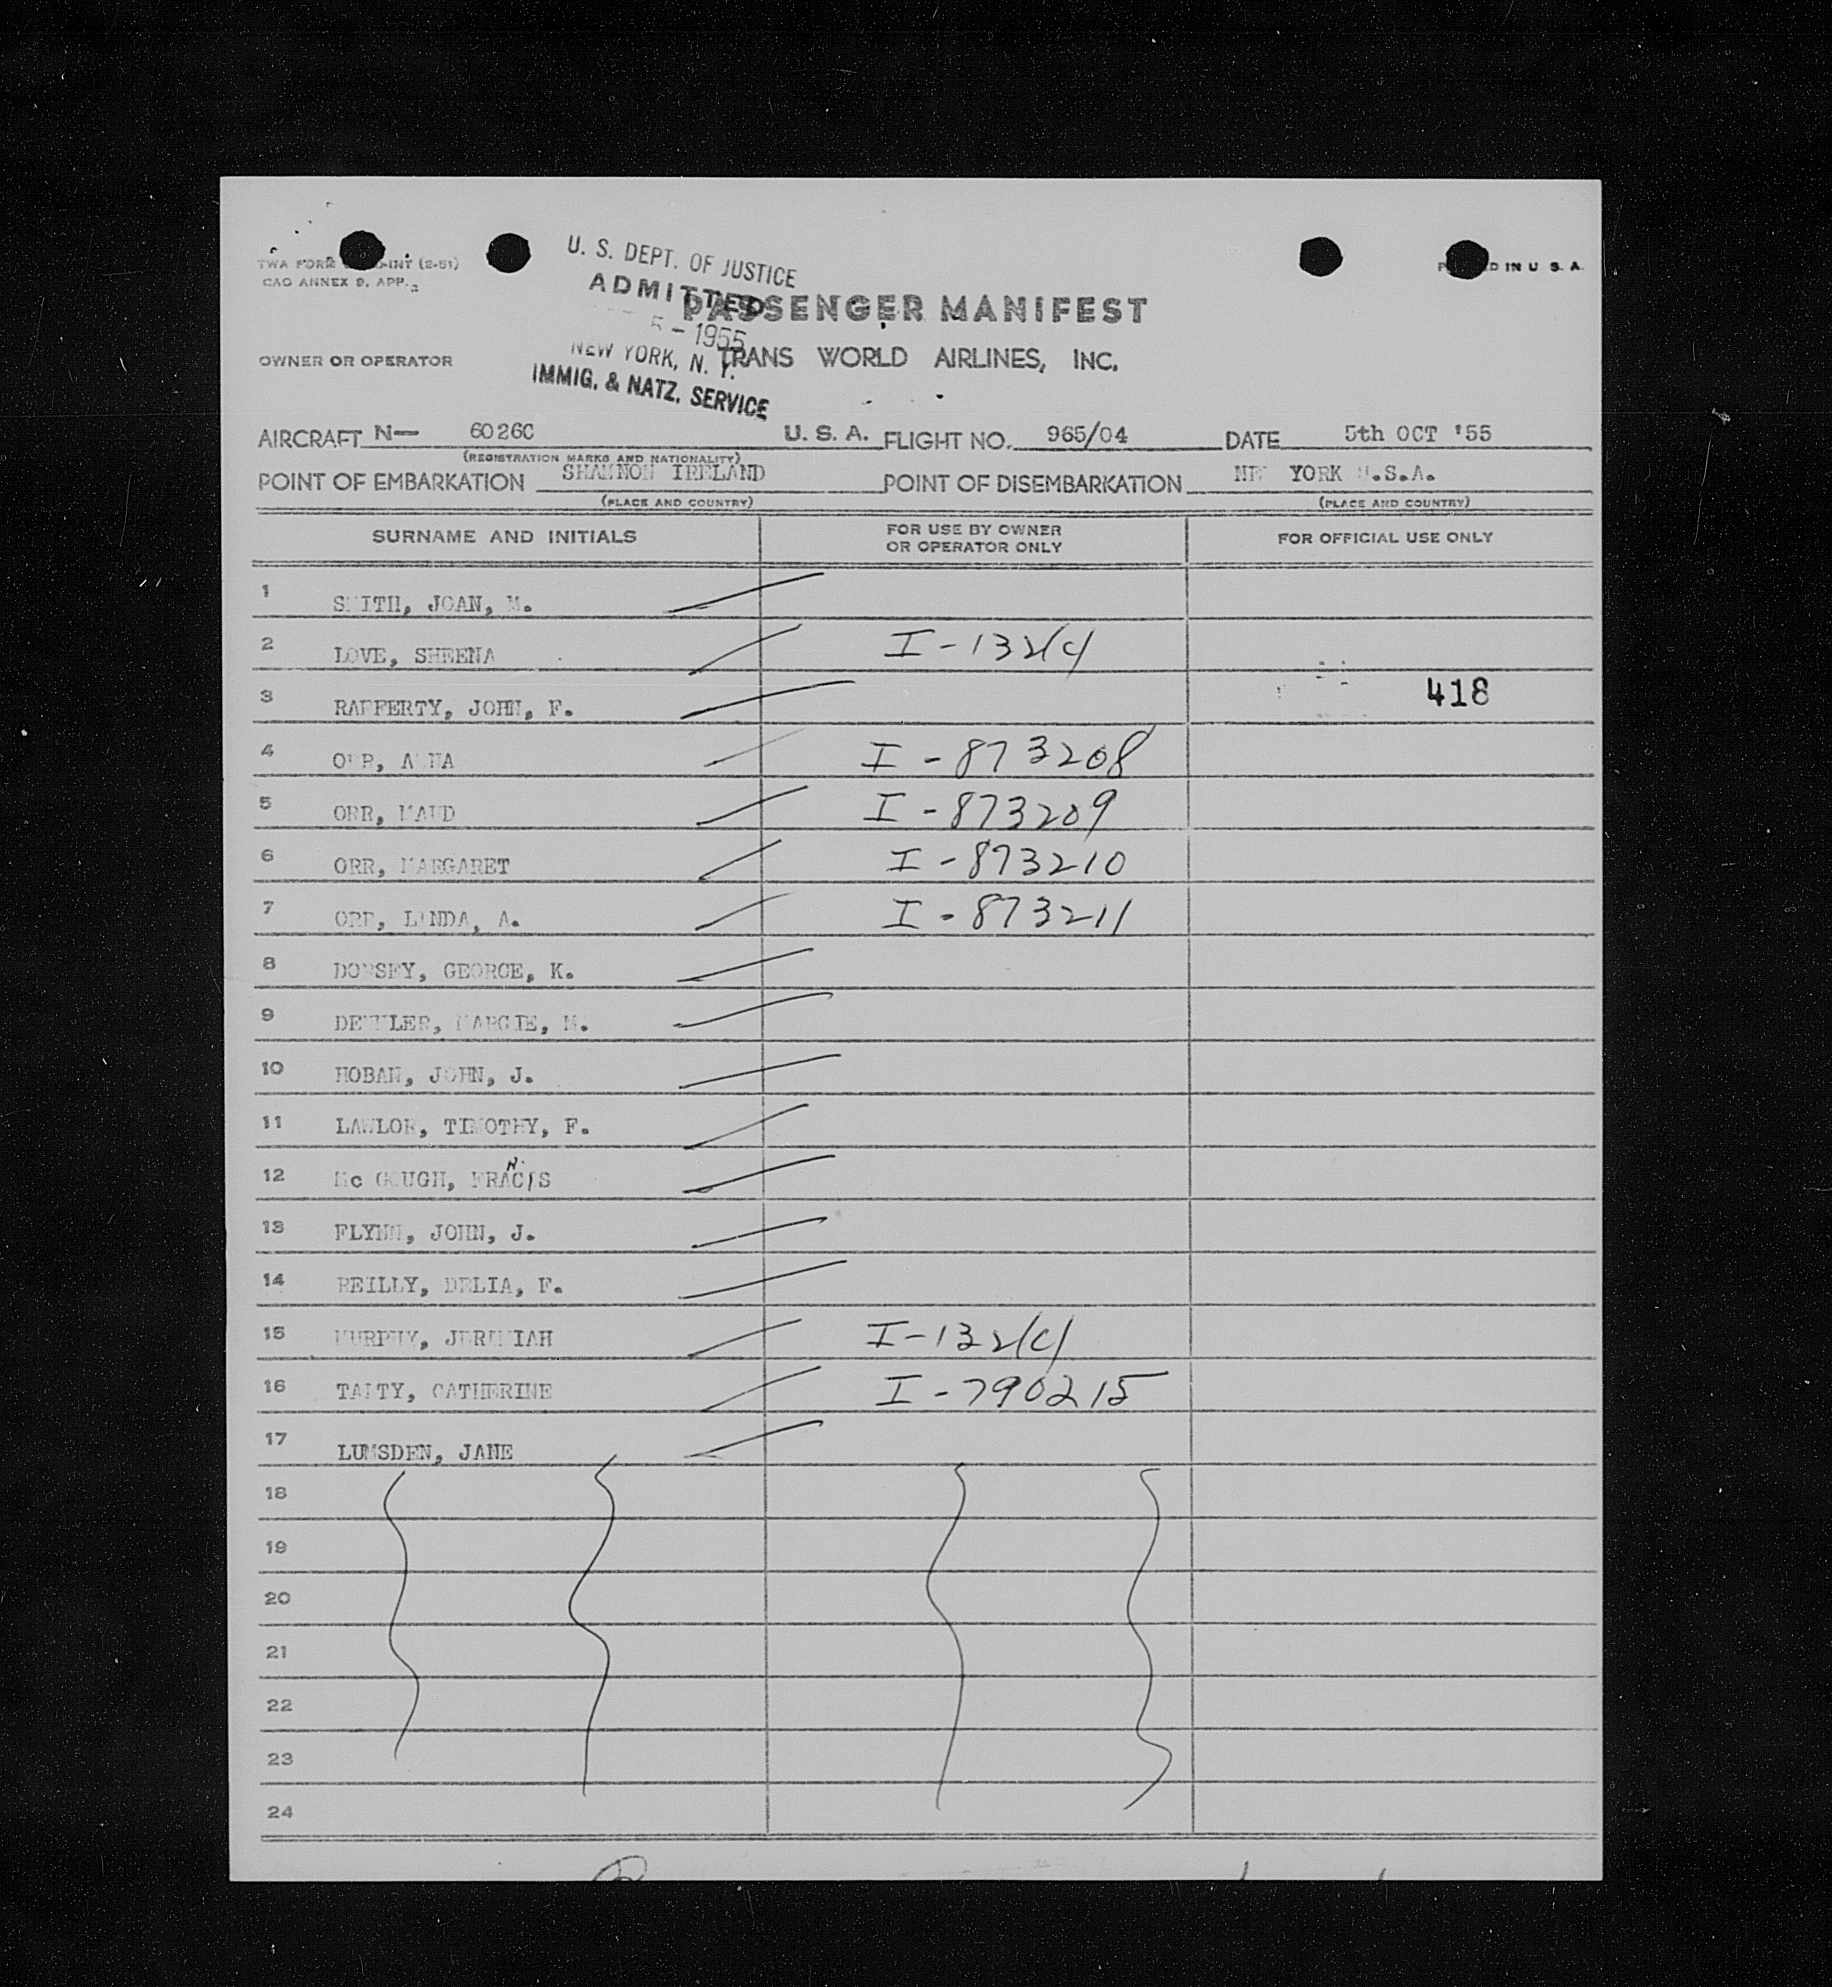 U. S. DEPT. OF JUSTICE
ADMITTED
5 - 1955
NEW YORK, N. Y.
IMMIG. & NATZ. SERVICE
TWA FORM -INT (2-51)
CAO ANNEX 9, APP. 2
IN U. S. A.
PASSENGER MANIFEST
OWNER OR OPERATOR TRANS WORLD AIRLINES, INC.
AIRCRAFT N- 6026C U. S. A. FLIGHT NO. 965/04 DATE 5th OCT '55
(REGISTRATION MARKS AND NATIONALITY)
POINT OF EMBARKATION SHANNON IRELAND POINT OF DISEMBARKATION NEW YORK U.S.A.
(PLACE AND COUNTRY) (PLACE AND COUNTRY)
SURNAME AND INITIALS FOR USE BY OWNER OR OPERATOR ONLY FOR OFFICIAL USE ONLY
1 SMITH, JOAN, M.
2 LOVE, SHEENA I-132(c)
3 RAFFERTY, JOHN, F. 418
4 ORR, ANNA I-873208
5 ORR, MAUD I-873209
6 ORR, MARGARET I-873210
7 ORR, LINDA, A. I-873211
8 DORSEY, GEORGE, K.
9 MARGIE, M.
10 HOBAN, JOHN, J.
11 LAWLOR, TIMOTHY, F.
12 Mc GOUGH, FRANCIS
13 FLYNN, JOHN, J.
14 REILLY, DELIA, F.
15 MURPHY, JEREMIAH I-132(c)
16 TALTY, CATHERINE I-790215
17 LUMSDEN, JANE
18
19
20
21
22
23
24